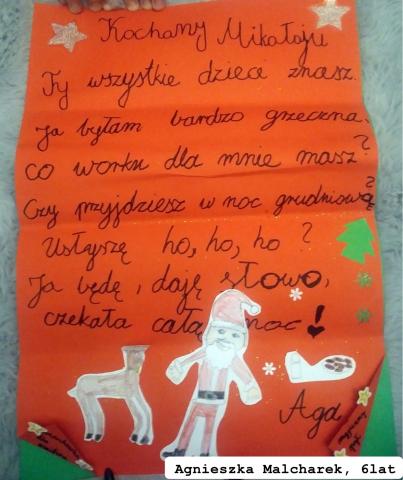 Kochany Mikołaju
Ty wszystkie dzieci znasz.
Ja byłam bardzo grzeczna,
co worku dla mnie masz?
Czy przyjdziesz w noc grudniową?
Usłyszę ho, ho, ho ?
Ja będę, daję słowo,
czekała całą noc!
Aga
Agnieszka Malcharek, 6lat